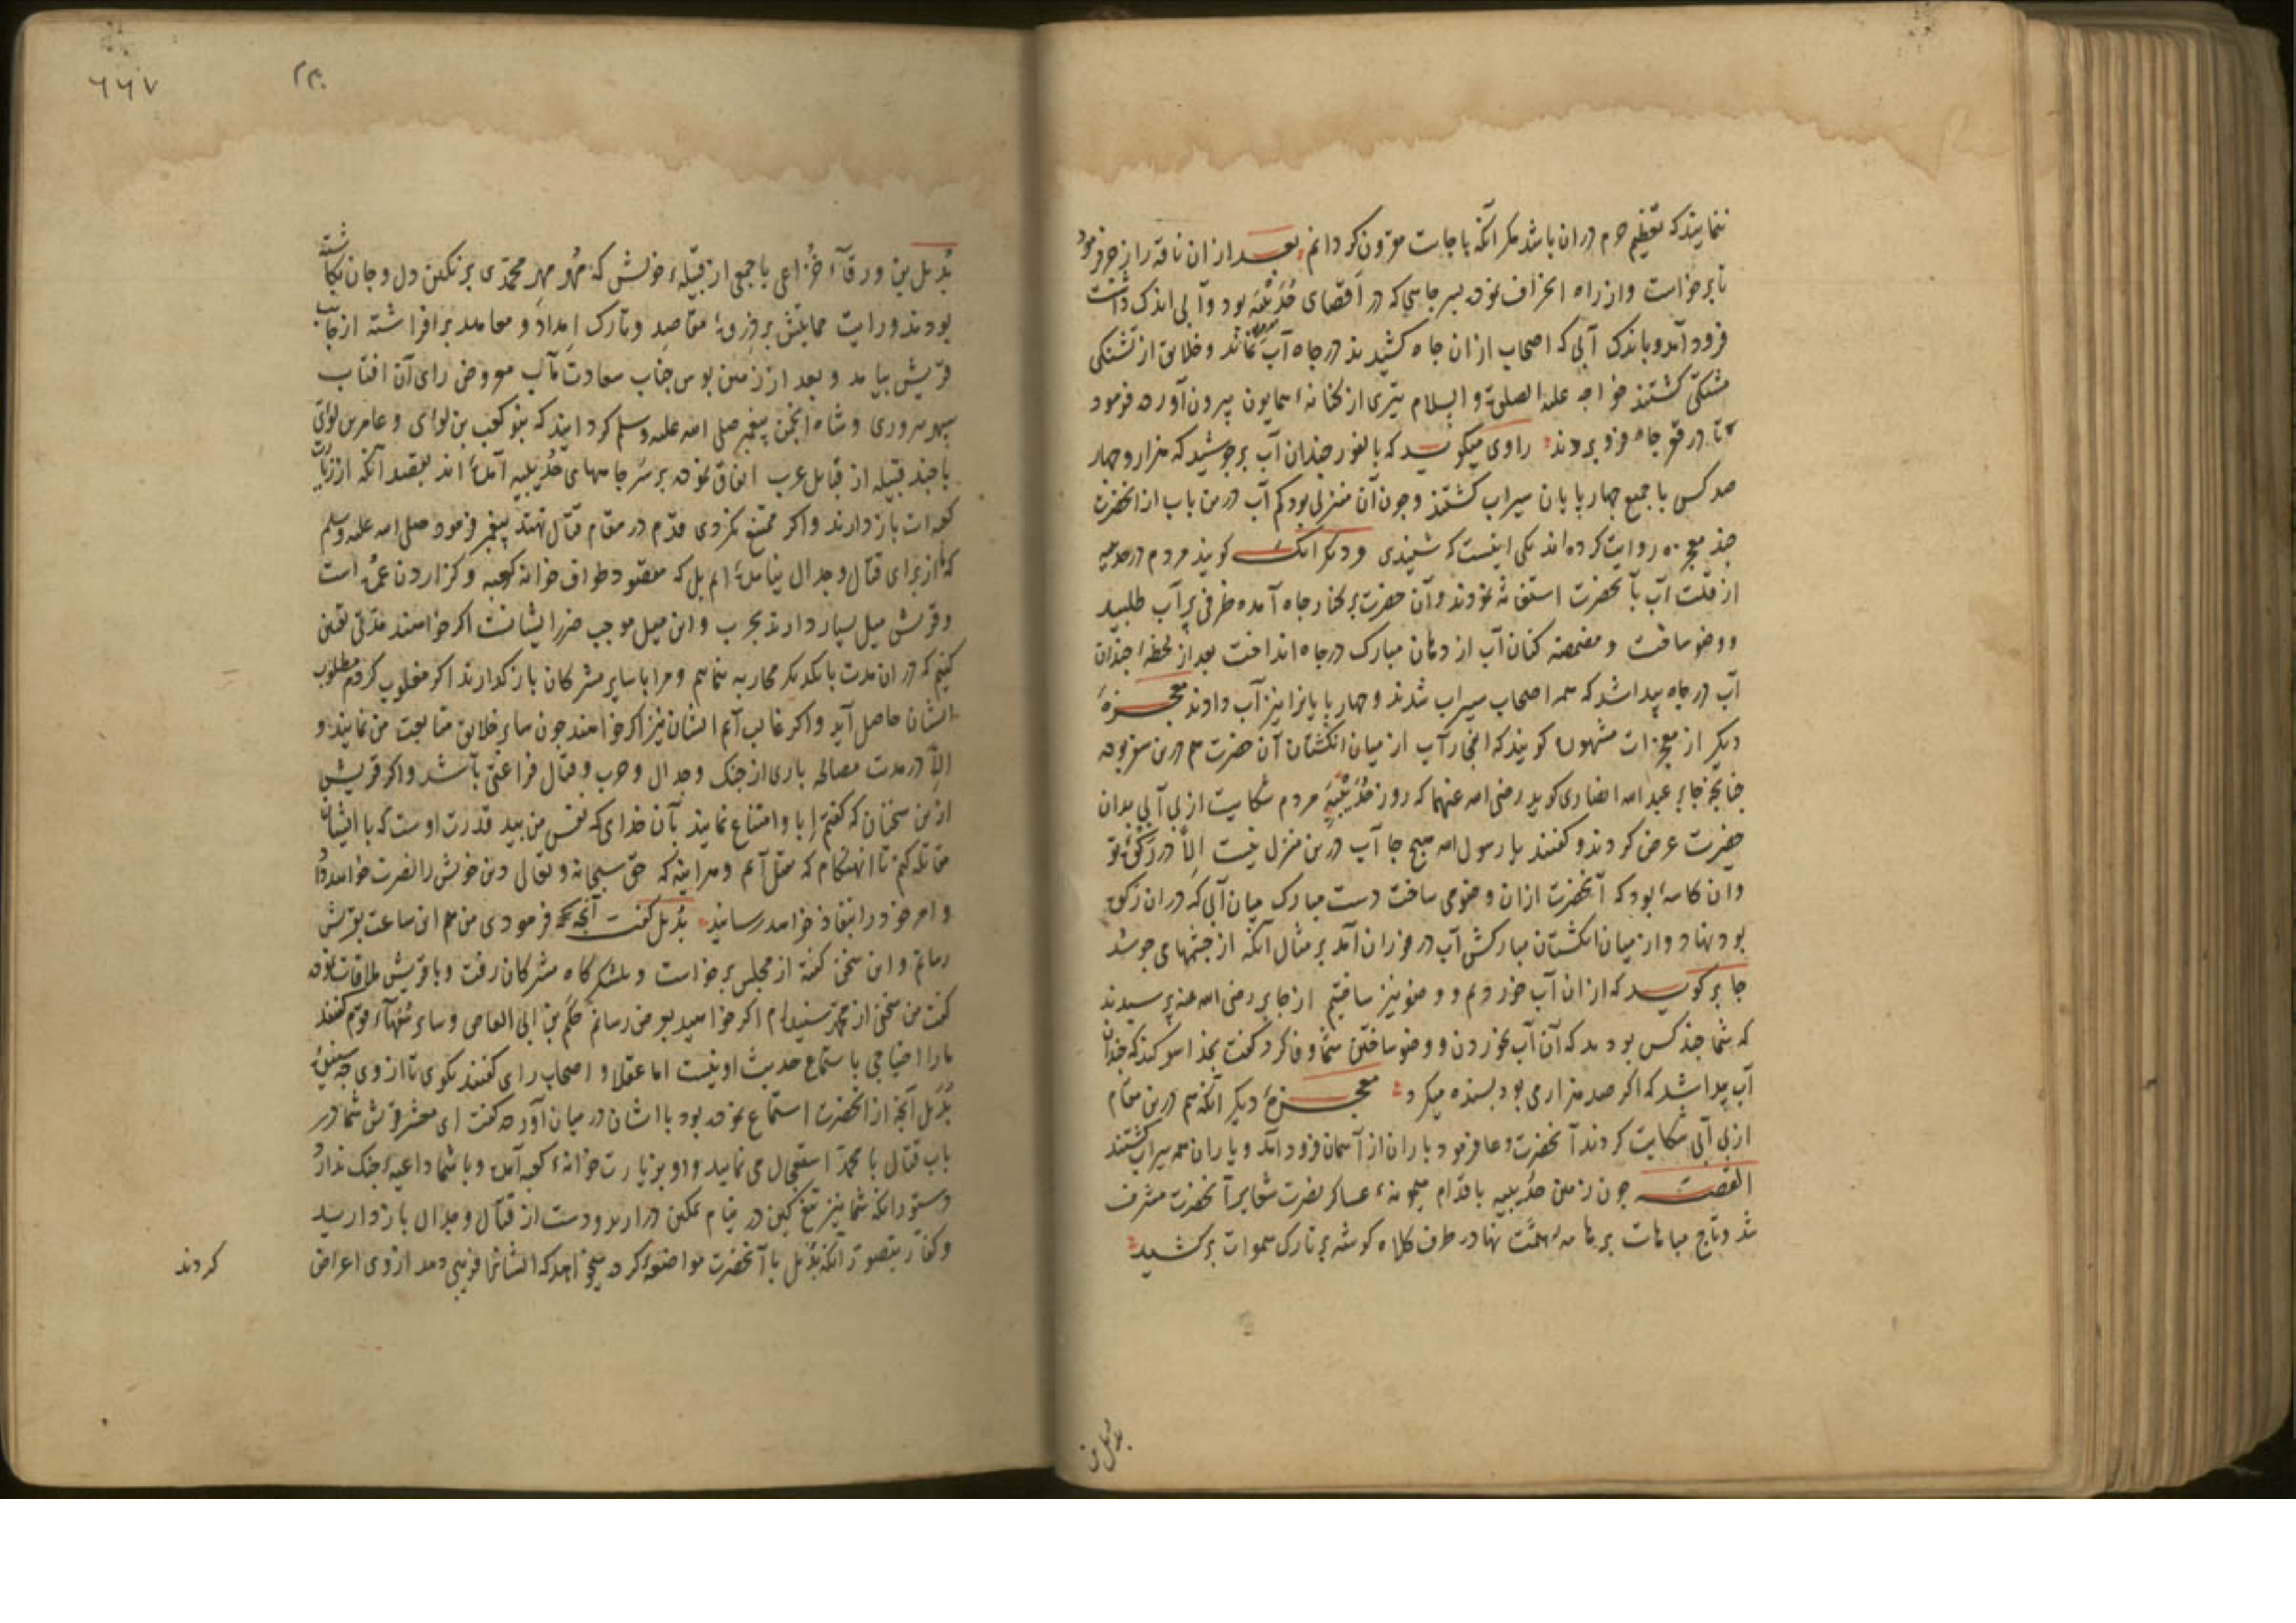 ننمایند که تعظیم حرم در ان باشد مکر آنکه باجابت مقرون کردانم بعد از ان ناقه را زجر فرمود
تا برخواست و از راه انحراف نموده بسر جاهی که در اقصای حُدَیْبَیه بود و آبی اندک داشت
فرود آمد و باندک آبی که اصحاب از ان جاه کشیدند در جاه آب نماند و خلایق از تشنکی
مشتکی کشتند خواجه علیه الصلوة و السلام تیری از کنانه همایون بیرون آورده فرمود
تا در قعر جاه فرو بردند راوی میکوید که بالفور جندان آب برجوشید که هزار و جهار
صد کس با جمیع جهار پایان سیراب کشتند و جون آن منزلی بود کم آب درین باب از انحضرت
جند معجزه روایت کرده اند یکی اینست که شنیدی و دیکر آنک کویند مردم در حدیبیه
از قلت آب بآنحضرت استغاثه نمودند و آن حضرت بر کنار جاه آمده ظرفی پر آب طلبید
و وضو ساخت و مضمضه کنان آب از دهان مبارک در جاه انداخت بعد از لحظهٔ جندان
آب در جاه پیدا شد که همه اصحاب سیراب شدند و جهار پایانرا نیز آب دادند معجزهٔ
دیکر از معجزات مشهوره کویند که انفجار آب از میان انکشتان آن حضرت هم درین سفر بوده
جنانجه جابر عبد الله انصاری کوید رضی الله عنهما که روز حُدَیْبَیه مردم شکایت از بی آبی بدان
حضرت عرض کردند و کفتند یا رسول الله هیج جا آب درین منزل نیست الّا در رکوهٔ تو
و ان کاسهٔ بود که آنحضرت ازان وضو می ساخت دست مبارک میان آبی که در ان رکوه
بود نهاد و از میان انکشتان مبارکش آب در فوران آمد بر مثال آنکه از جشمهای جوشد
جابر کوید که از ان آب خوردیم و وضو نیز ساختیم از جابر رضی الله عنه پرسیدند
که شما جند کس بودید که آن آب بخوردن و وضو ساختن شما وفا کرد کفت بخدا سوکند که جندان
آب پیدا شد که اکر صد هزار می بود بسنده میکرد معجزهٔ دیکر آنکه هم درین مقام
از بی آبی شکایت کردند آنحضرت دعا فرمود باران از آسمان فرود آمد و یاران همه سیراب کشتند
القصه جون زمین حدیبیه باقدام میمونهٔ عساکر نصرت شعایر آنحضرت مشرف
شد و تاج مباهات بر هامهٔ همّت نهاد و طرف کلاه کوشه بر تارک سموات برکشید
بدیل بن
٦٦٧
بُدیل بن ورقآء خُزاعی با جمعی از قبیلهٔ خویش که مُهر مهرِ محمّدی بر نکین دل و جان نکاشته
بودند و رایت حمایتش بر ذروهٔ مقاصد و تارک اِمداد و محامد برافراشته از جانب
قریش بیامد و بعد از زمین بوس جناب سعادت مآب معروض رای آن افتاب
سپهر سروری و شاه انجمن پیغمبر صلی الله علیه وسلم کردانید که بنو کعب بن لوای و عامر بن لوای
با جند قبیله از قبایل عرب اتفاق نموده بر سر جاههای حُدیبیه آمدهٔ اند بقصد آنکه از زیارت
کعبه ات باز دارند و اکر ممتنع نکردی قدم در مقام قتال نهند پیغمبر فرمود صلی الله علیه وسلم
که ما از برای قتال و جدال نیامدهٔ ایم بل که مقصود طواف خانه کعبه و کزاردن عمره است
و قریش میل بسیار دارند بحرب و این میل موجب ضرر ایشانست اکر خواهند مدّتی تعیین
کنیم که در ان مدت با یکدیکر محاربه ننماییم و مرا با سایر مشرکان باز کذارند اکر مغلوب کردم مطلوب
ایشان حاصل آید و اکر غالب آیم ایشان نیز اکر خواهند جون سایر خلایق متابعت من نمایند و
الّا در مدت مصالحه باری از جنک و جدال و حرب و قتال فراغتی باشد و اکر قریش
ازین سخنان که کفتم اِبا و امتناع نمایند بآن خدای که نفس من بید قدرت اوست که با ایشان
مقاتله کنم تا انهنکام که مقتل آیم و هراینه که حق سبحانه و تعالی دین خویش را نصرت خواهد داد
و امر خود را بنفاذ خواهد رسانید بُدیل کفت آنجه فرمودی من هم این ساعت بقریش
رسانم و این سخن کفته از مجلس برخواست و بلشکرکاه مشرکان رفت و با قریش ملاقات نموده
کفت من سخنی از محمّد شنیده ام اکر خواهید بعرض رسانم حکم بن ابی العاص و سایر سُفهآء قوم کفتند
ما را احتیاجی باستماع حدیث او نیست اما عقلا و اصحاب رای کفتند بکوی تا از وی جه شنیدهٔ
بُدیل آنجه از انحضرت استماع نموده بود با ایشان در میان آورده کفت ای معشر قریش شما در
باب قتال با محمّد استعجال می نمایید و او بزیارت خانهٔ کعبه آمده و با شما داعیهٔ جنک ندارد
دستور آنکه شما نیز تیغ کین در نیام تمکین در ارید و دست از قتال و جدال باز دارید
و کفار بتصور آنکه بُدیل با آنحضرت مواضعه کرده میخواهد که ایشانرا فریبی دهد از وی اعراض
کردند